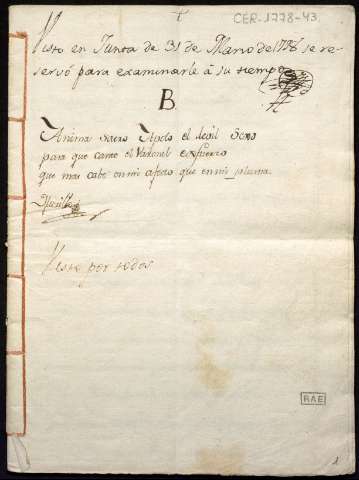 †
CER-1778-43
Visto en Junta de 31 de Marzo de 1778 se re
servó para examinarle à su tiempo
B
Anima sacro Apolo el debil
para que cante el Varonil esfuerzo
que mas cabe en mi afecto que en mi pluma
Visto por todos
RAE
1